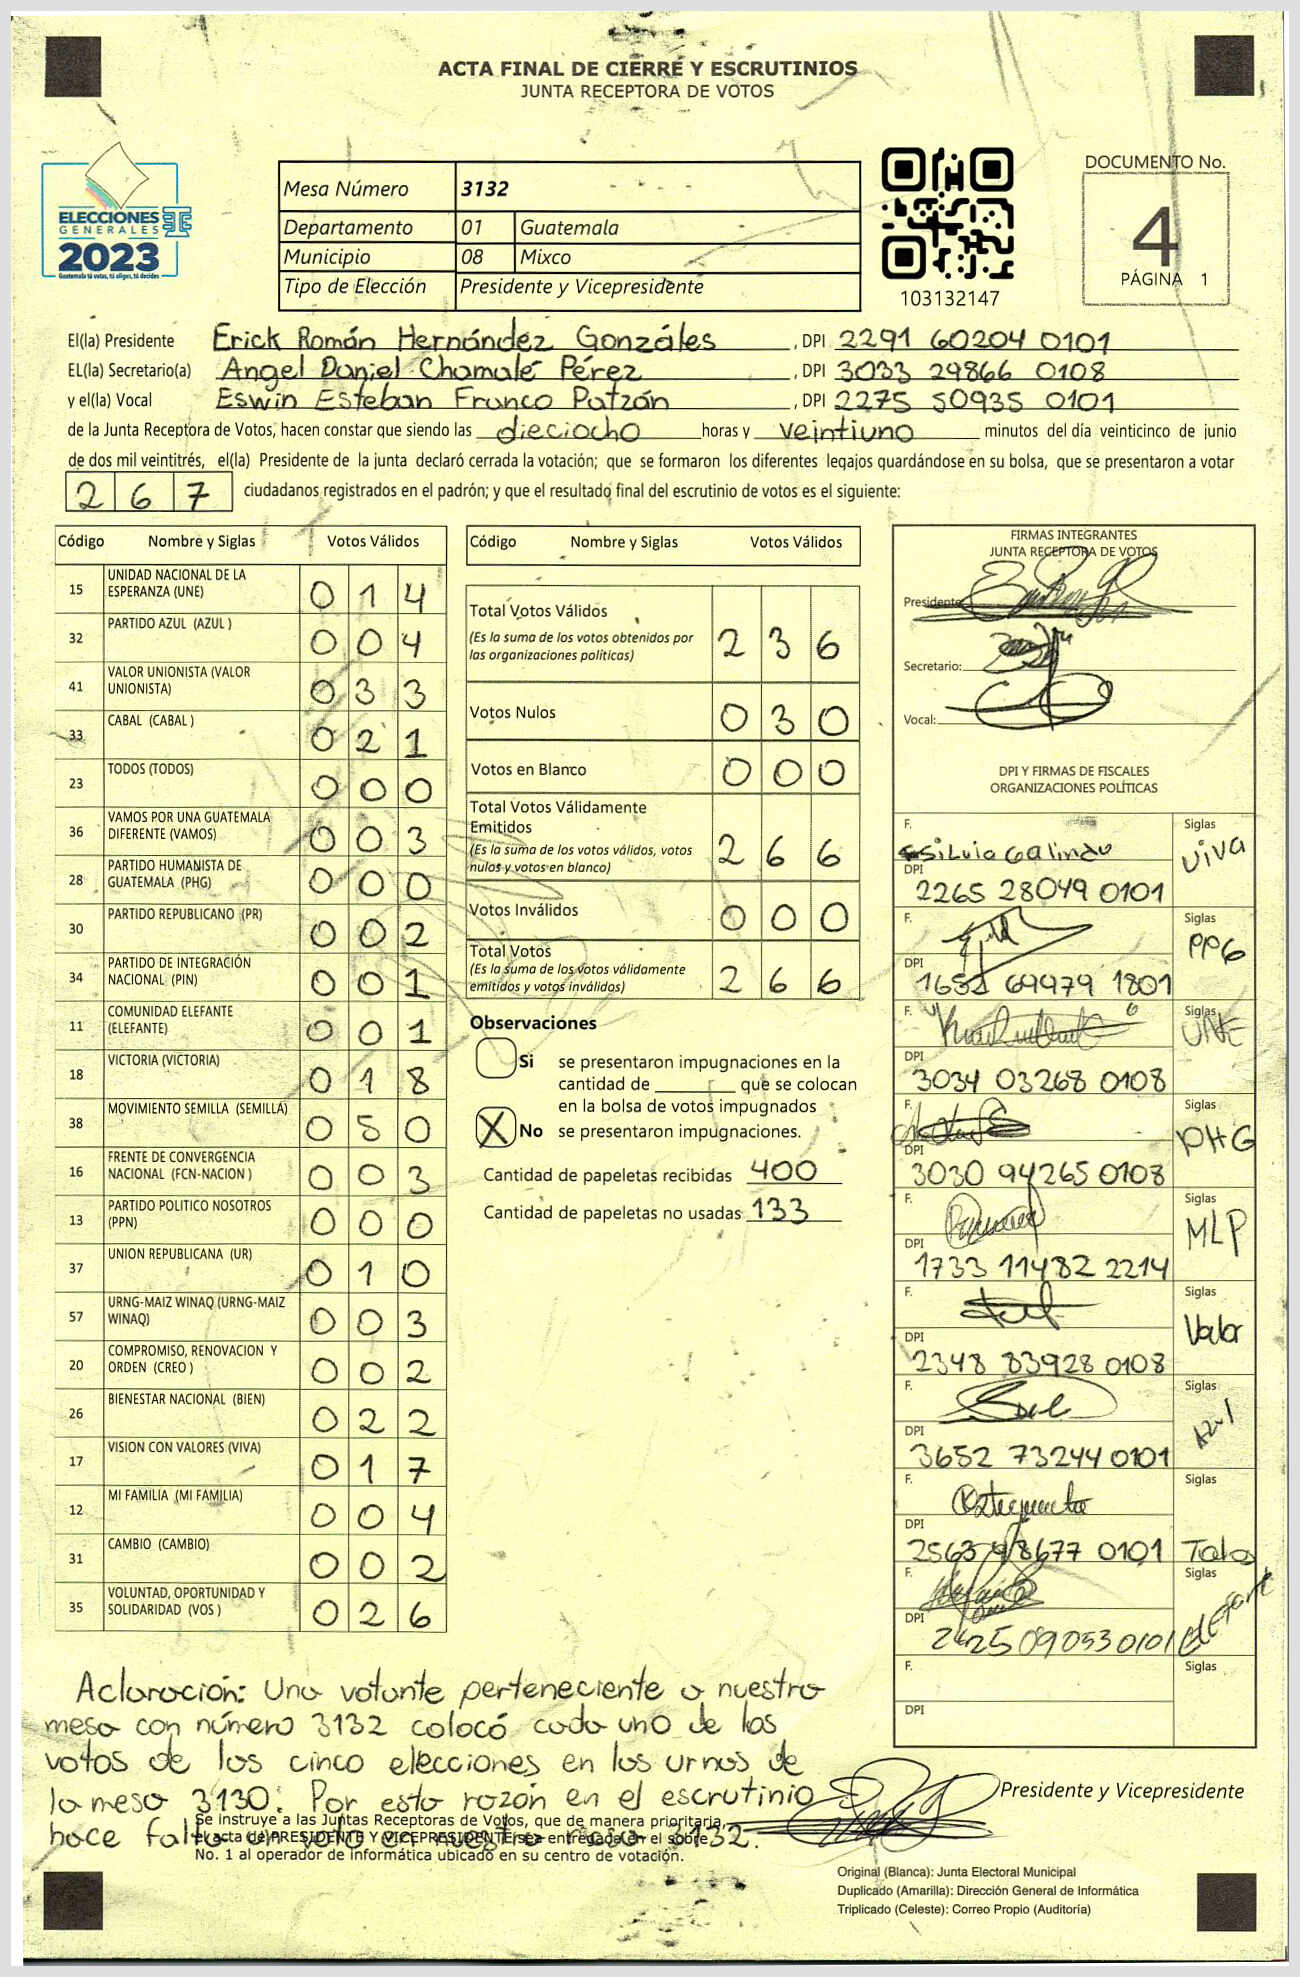 ACTA FINAL DE CIERRE Y ESCRUTINIOS
JUNTA RECEPTORA DE VOTOS
ELECCIONES
GENERALES
2023
Guatemala tú votas, tú eliges, tú decides
Mesa Número 3132
Departamento 01 Guatemala
Municipio 08 Mixco
Tipo de Elección Presidente y Vicepresidente
103132147
DOCUMENTO No.
4
PÁGINA 1
El(la) Presidente Erick Román Hernández Gonzáles , DPI 2291 60204 0101
EL(la) Secretario(a) Angel Daniel Chamalé Pérez , DPI 3033 29866 0108
y el(la) Vocal Eswin Esteban Franco Patzán , DPI 2275 50935 0101
de la Junta Receptora de Votos, hacen constar que siendo las dieciocho horas y veintiuno minutos del día veinticinco de junio
de dos mil veintitrés, el(la) Presidente de la junta declaró cerrada la votación; que se formaron los diferentes legajos guardándose en su bolsa, que se presentaron a votar
267 ciudadanos registrados en el padrón; y que el resultado final del escrutinio de votos es el siguiente:
Código Nombre y Siglas Votos Válidos
15 UNIDAD NACIONAL DE LA ESPERANZA (UNE) 014
32 PARTIDO AZUL (AZUL ) 004
41 VALOR UNIONISTA (VALOR UNIONISTA) 033
33 CABAL (CABAL ) 021
23 TODOS (TODOS) 000
36 VAMOS POR UNA GUATEMALA DIFERENTE (VAMOS) 003
28 PARTIDO HUMANISTA DE GUATEMALA (PHG) 000
30 PARTIDO REPUBLICANO (PR) 002
34 PARTIDO DE INTEGRACIÓN NACIONAL (PIN) 001
11 COMUNIDAD ELEFANTE (ELEFANTE) 001
18 VICTORIA (VICTORIA) 018
38 MOVIMIENTO SEMILLA (SEMILLA) 050
16 FRENTE DE CONVERGENCIA NACIONAL (FCN-NACION ) 003
13 PARTIDO POLITICO NOSOTROS (PPN) 000
37 UNION REPUBLICANA (UR) 010
57 URNG-MAIZ WINAQ (URNG-MAIZ WINAQ) 003
20 COMPROMISO, RENOVACION Y ORDEN (CREO ) 002
26 BIENESTAR NACIONAL (BIEN) 022
17 VISION CON VALORES (VIVA) 017
12 MI FAMILIA (MI FAMILIA) 004
31 CAMBIO (CAMBIO) 002
35 VOLUNTAD, OPORTUNIDAD Y SOLIDARIDAD (VOS ) 026
Código Nombre y Siglas Votos Válidos
Total Votos Válidos 236
(Es la suma de los votos obtenidos por
las organizaciones políticas)
Votos Nulos 030
Votos en Blanco 000
Total Votos Válidamente
Emitidos 266
(Es la suma de los votos válidos, votos
nulos y votos en blanco)
Votos Inválidos 000
Total Votos 266
(Es la suma de los votos válidamente
emitidos y votos inválidos)
Observaciones
Si se presentaron impugnaciones en la
cantidad de ________ que se colocan
en la bolsa de votos impugnados
X No se presentaron impugnaciones.
Cantidad de papeletas recibidas 400
Cantidad de papeletas no usadas 133
FIRMAS INTEGRANTES
JUNTA RECEPTORA DE VOTOS
Presidente:
Secretario:
Vocal:
DPI Y FIRMAS DE FISCALES
ORGANIZACIONES POLÍTICAS
F. Silvia Galindo Siglas VIVA
DPI 2265 28049 0101
F. Siglas PPG
DPI 1652 69979 1801
F. Siglas UNE
DPI 3034 03268 0108
F. Siglas PHG
DPI 3030 94265 0108
F. Siglas MLP
DPI 1733 11482 2214
F. Siglas Valor
DPI 2348 83928 0108
F. Siglas Azul
DPI 3652 73244 0101
F. Siglas Todos
DPI 2563 98677 0101
F. Siglas elefante
DPI 2425 09053 0101
F. Siglas
DPI
Aclaración: Una votante perteneciente a nuestra
mesa con número 3132 colocó cada uno de los
votos de las cinco elecciones en las urnas de
la mesa 3130. Por esta razón en el escrutinio
hace falta un voto en nuestra mesa 3132.
Se instruye a las Juntas Receptoras de Votos, que de manera prioritaria,
el acta de PRESIDENTE Y VICEPRESIDENTE, sea entregada en el sobre
No. 1 al operador de informática ubicado en su centro de votación.
Presidente y Vicepresidente
Original (Blanca): Junta Electoral Municipal
Duplicado (Amarilla): Dirección General de Informática
Triplicado (Celeste): Correo Propio (Auditoría)